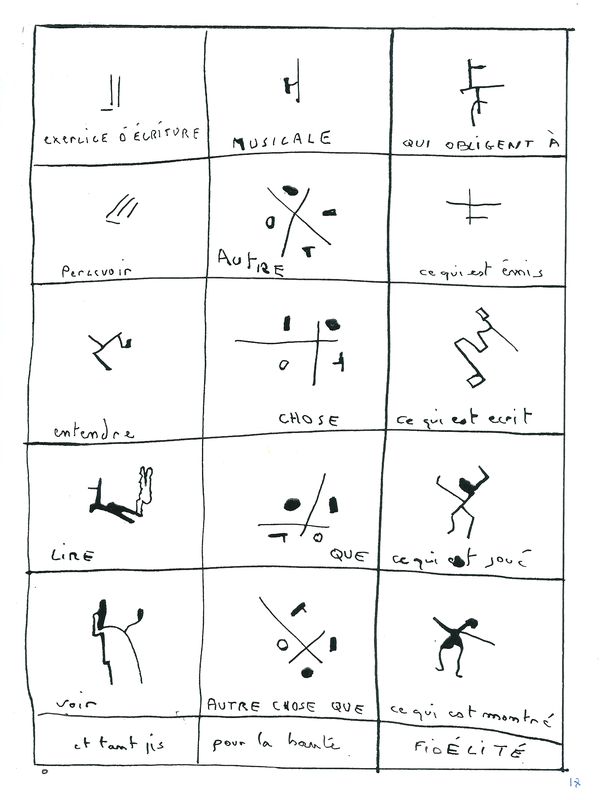 exercice d'ÉCRITURE
MUSICALE
QUI OBLIGENT À
Percevoir
AUTRE
ce qui est émis
entendre
CHOSE
ce qui est ecrit
LIRE
QUE
ce qui est joué
voir
AUTRE CHOSE QUE
ce qui est montré
et tant pis
pour la
FIDÉLITÉ
18